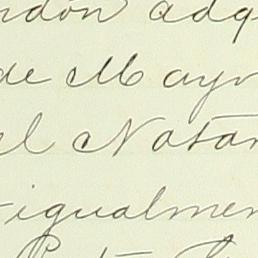 ndón adq
de Mayo
el Notar
igualmen